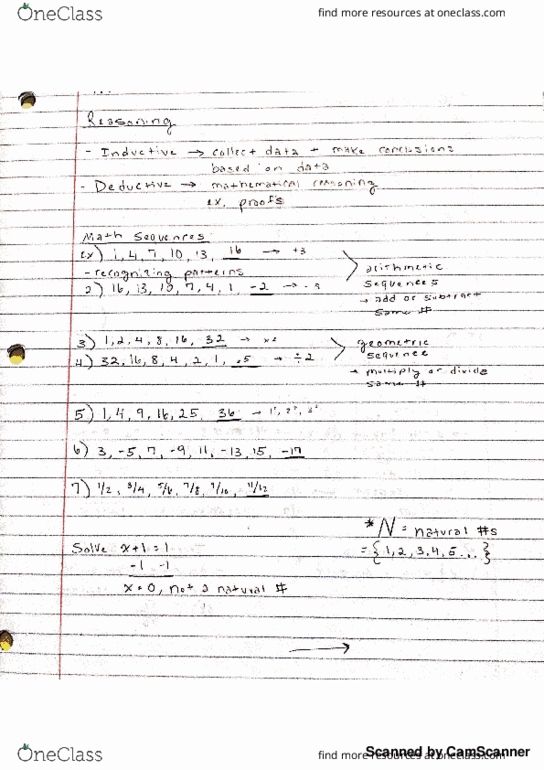 OneClass
find more resources at oneclass.com
Reasoning
- Inductive → collect data + make conclusions
based on data
- Deductive → mathematical reasoning
ex. proofs
Math Sequences
ex) 1, 4, 7, 10, 13, 16 → +3
- recognizing patterns
2) 16, 13, 10, 7, 4, 1, -2 → -3
arithmetic
sequences
→ add or subtract
same #
3) 1, 2, 4, 8, 16, 32 → x2
4) 32, 16, 8, 4, 2, 1, .5 → ÷2
geometric
sequence
→ multiply or divide
same #
5) 1, 4, 9, 16, 25, 36 → 1², 2², 3²
6) 3, -5, 7, -9, 11, -13, 15, -17
7) 1/2, 3/4, 5/6, 7/8, 9/10, 11/12
*N = natural #s
= {1, 2, 3, 4, 5...}
Solve x+1=1
-1 -1
x=0, not a natural #
→
OneClass
find more resources at oneclass.com
Scanned by CamScanner